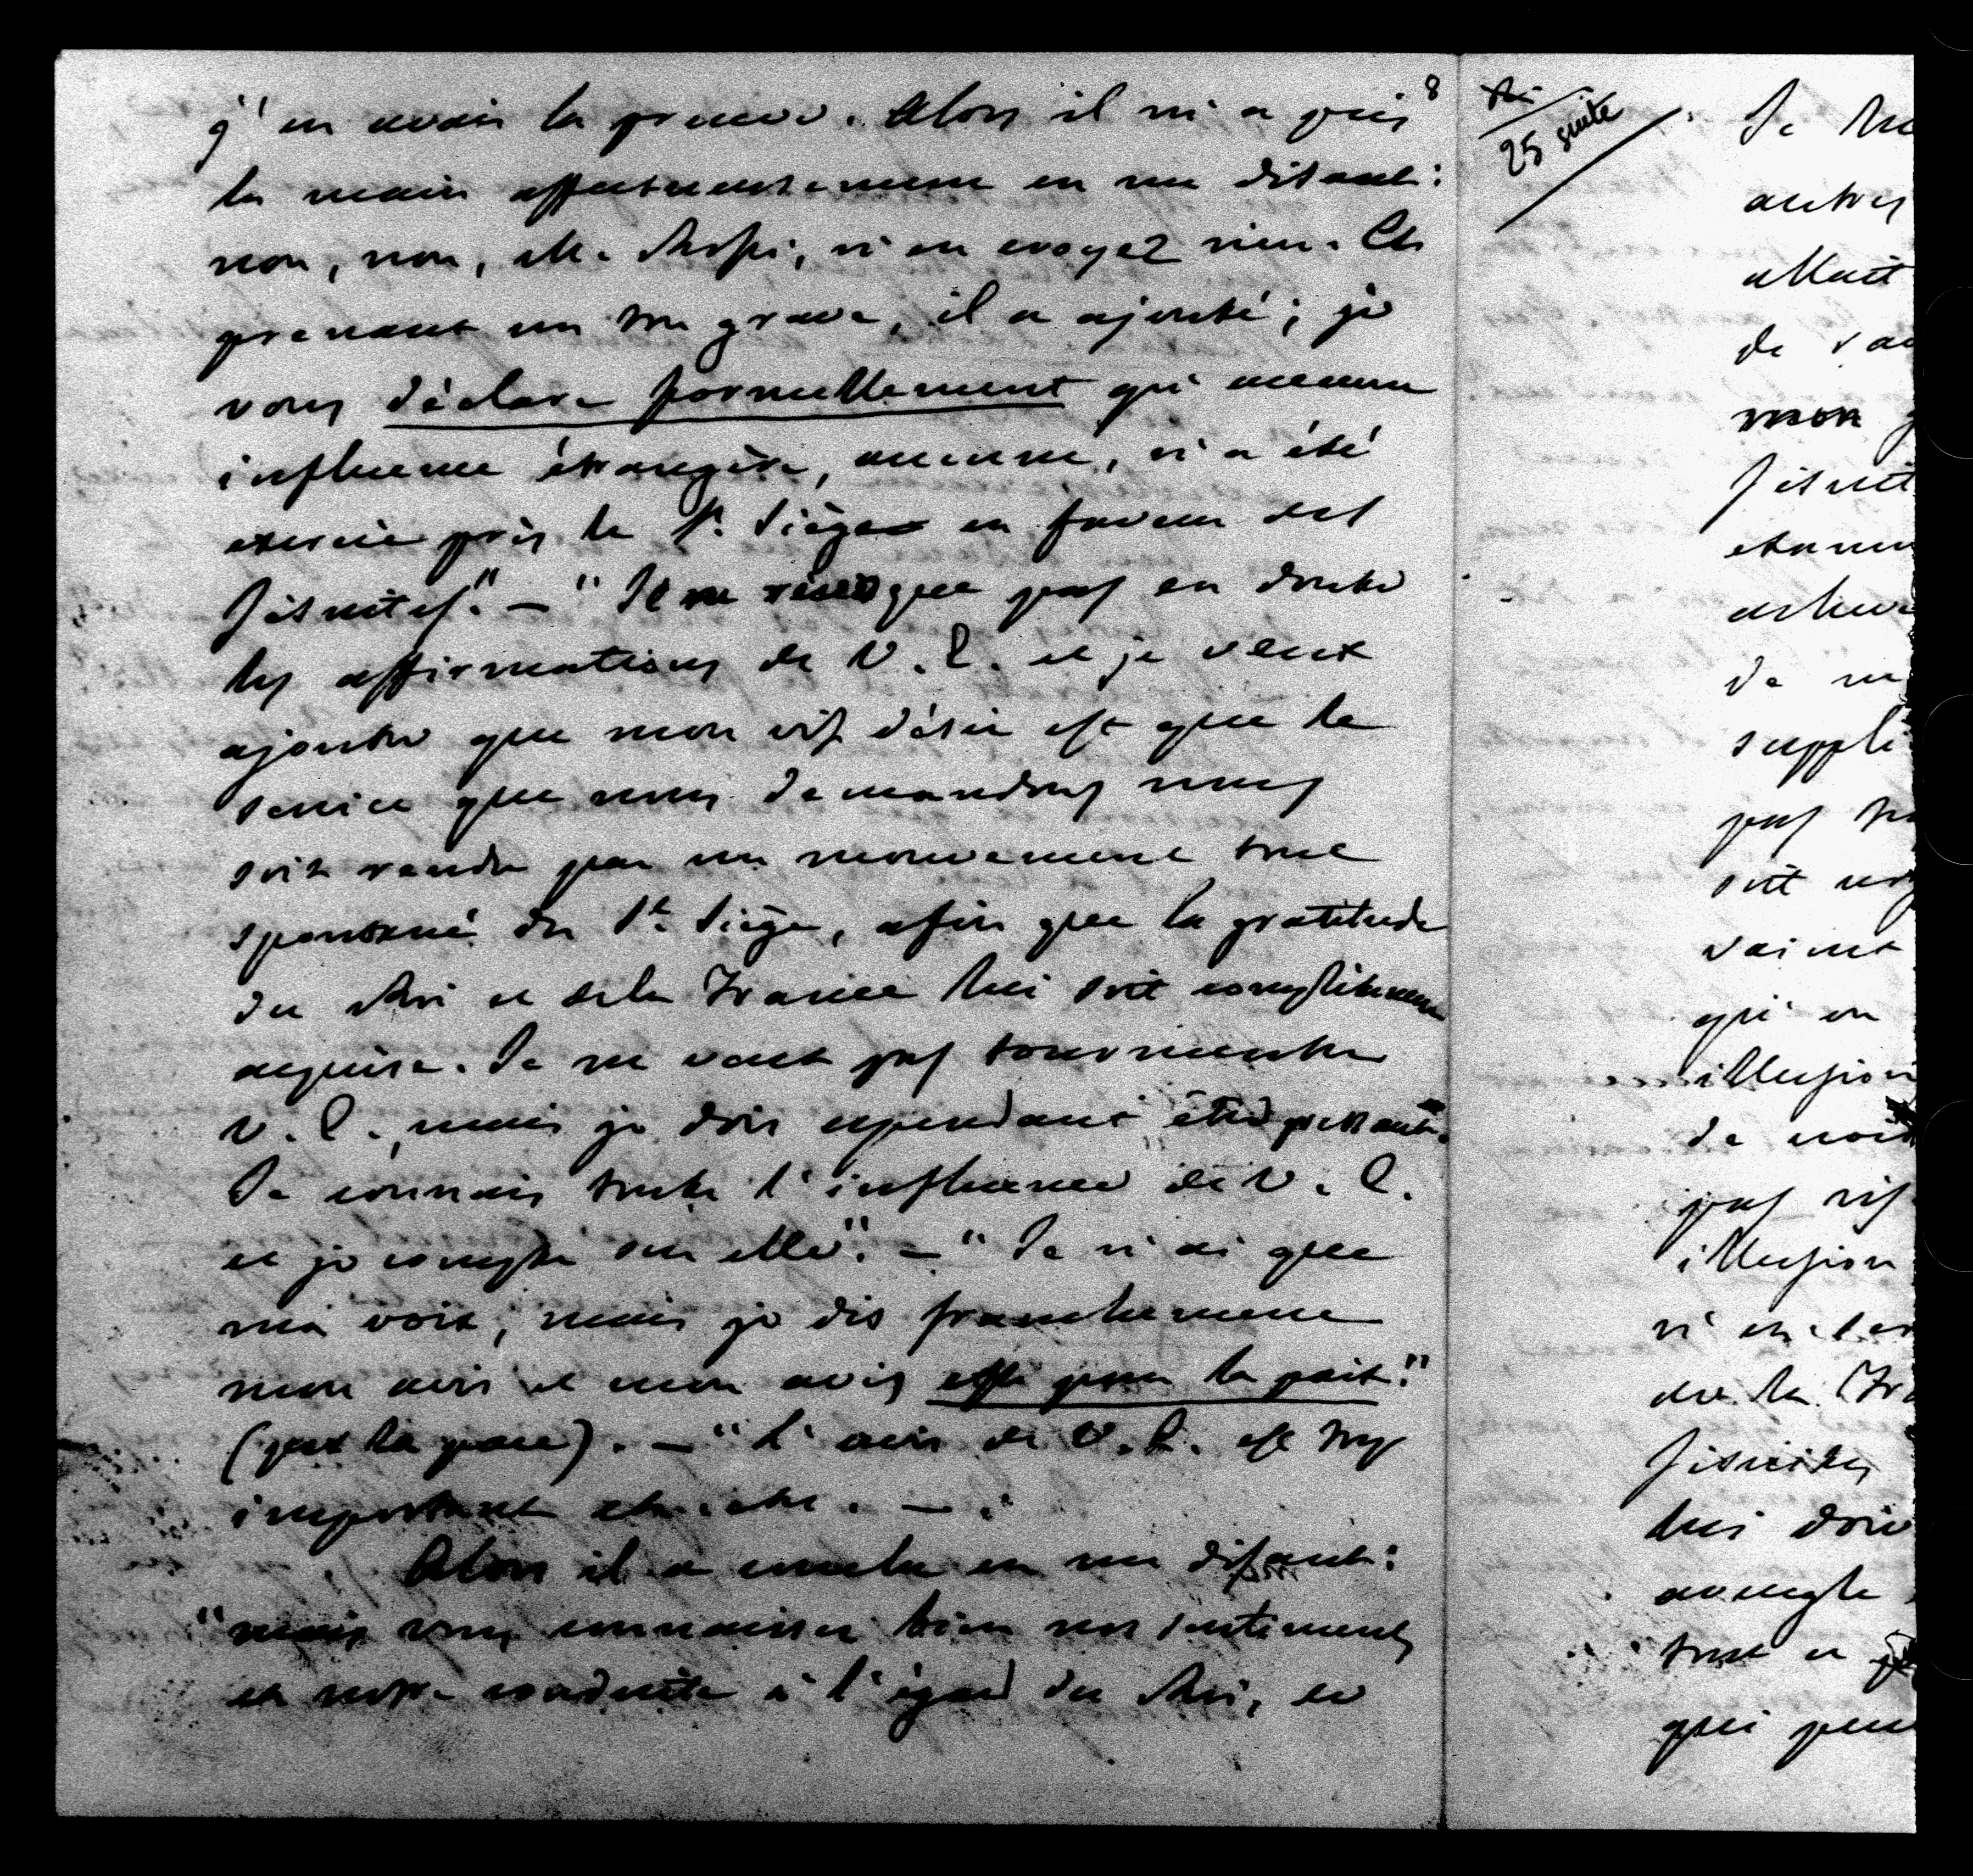 8
j'en avais la preuve. Alors il m'a pris
la main affectueusement en me disant:
non, non, M. Rossi, n'en croyez rien. Et
prenant un ton grave, il a ajouté; je
vous déclare formellement qu'aucune
influence étrangère, aucune, n'a été
exercée près le St. Siège en faveur des
Jésuites". — "Je ne révoque pas en doute
les affirmations de V. E. et je veux
ajouter que mon vif désir est que le
service que nous demandons nous
soit rendu par un mouvement tout
spontané du St. Siège, afin que la gratitude
du Roi et de la France lui soit complètement
acquise. Je ne veux pas tourmenter
V. E., mais je dois cependant être pressant.
Je connais toute l'influence de V. E.
et je compte sur elle". — "Je n'ai que
ma voix, mais je dis franchement
mon avis et mon avis est pour la paix."
(per la pace). — "L'avis de V. E. est trop
important etc. etc. —
Alors il a conclu en me disant:
"mais vous connaissez bien nos sentiments
et notre conduite à l'égard du Roi, et
25 suite
Je
autres
allait
de
mon
Jésuit
de
suppli
pas
soit
qu'en
illusion
de
pas
illusion
de la Fra
Jésuites
lui
aveugle
tout
qui